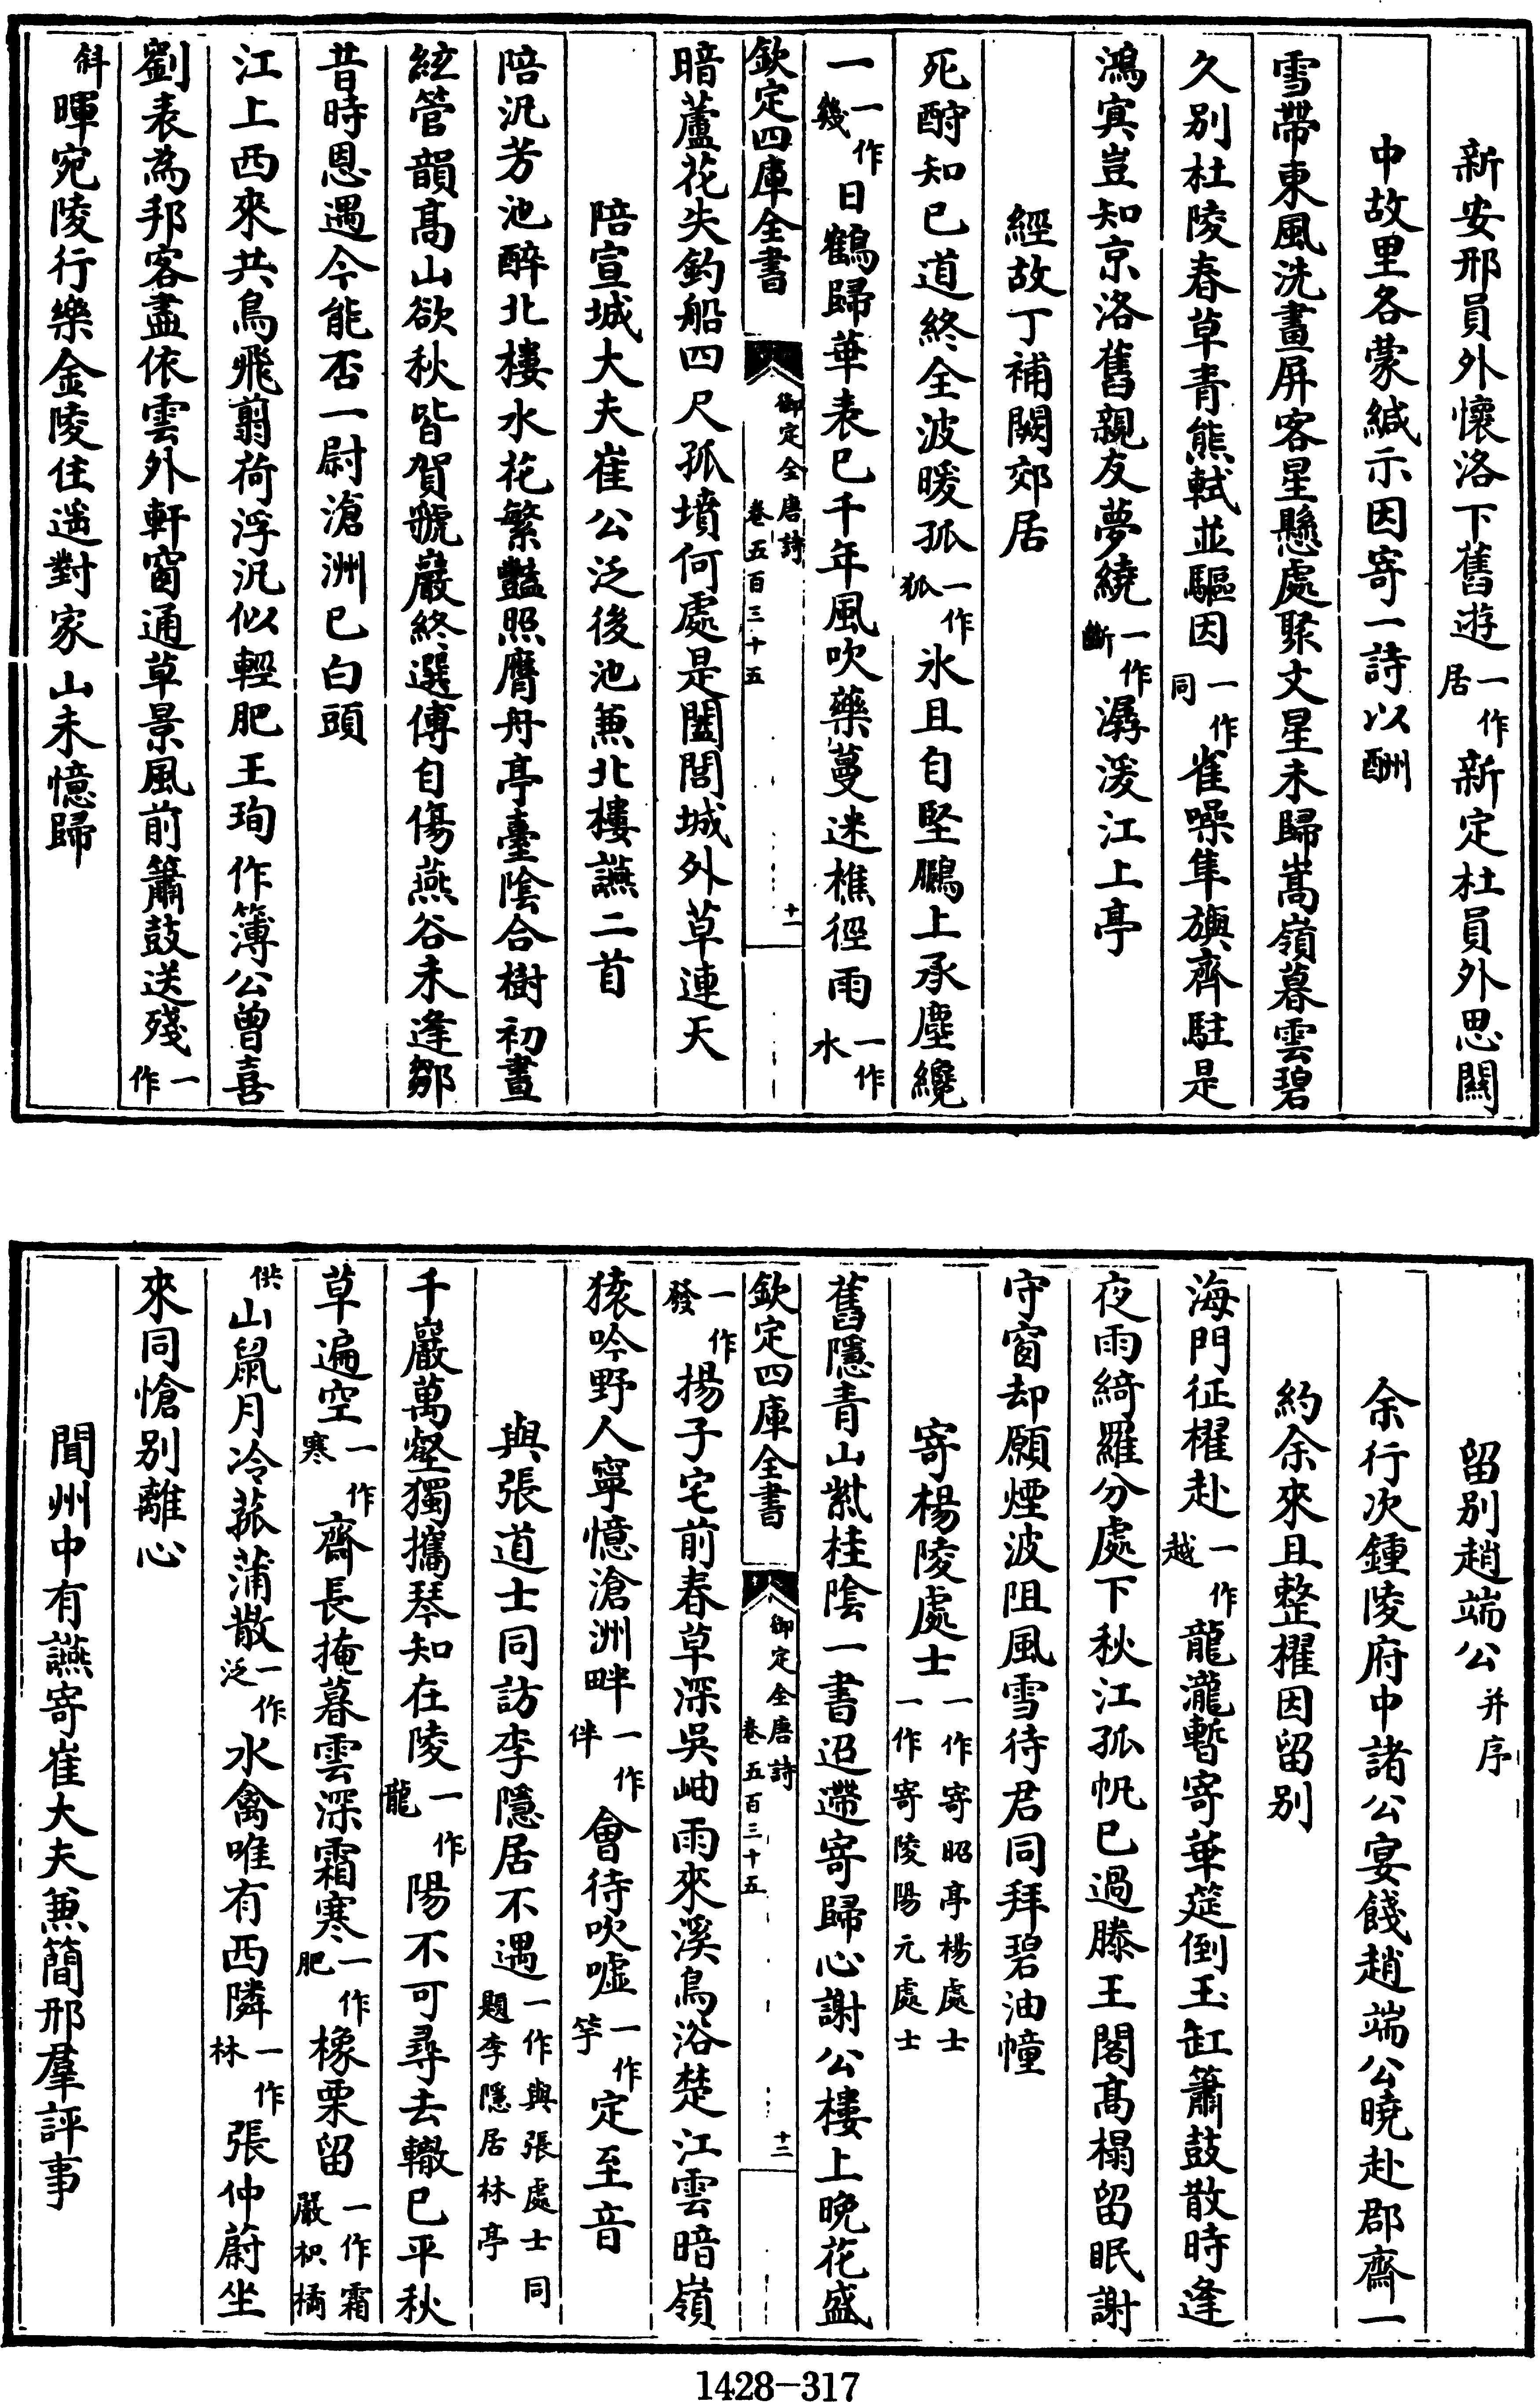 新安邢員外懷洛下舊遊一作居新定杜員外思關
中故里各蒙緘示因寄一詩以酬
雪帶東風洗畫屏客星懸處聚文星未歸嵩嶺暮雲碧
久別杜陵春草青熊軾並驅因一作同雀噪隼旟齊駐是
鴻㝠豈知京洛舊親友夢繞一作斷潺湲江上亭
經故丁補闕郊居
死酧知己道終全波暖孤一作狐氷且自堅鵩上承塵纔
一一作幾日鶴歸華表已千年風吹藥蔓迷樵徑雨一作水
欽定四庫全書
御定全唐詩卷五百三十五
十一
暗蘆花失釣船四尺孤墳何處是闔閭城外草連天
陪宣城大夫崔公泛後池兼北樓讌二首
陪汎芳池醉北樓水花繁豔照膺舟亭臺陰合樹初晝
絃管韻高山欲秋皆賀虢巖終選傅自傷燕谷未逢鄒
昔時恩遇今能否一尉滄洲已白頭
江上西來共鳥飛翦荷浮汎似輕肥王珣作簿公曾喜
劉表為邦客盡依雲外軒窗通草景風前簫鼓送殘一作
斜暉宛陵行樂金陵住遥對家山未憶歸
留別趙端公并序
余行次鍾陵府中諸公宴餞趙端公曉赴郡齋一
約余來且整櫂因留别
海門征櫂赴一作越龍瀧暫寄華筵倒玉缸簫鼓散時逢
夜雨綺羅分處下秋江孤帆已過滕王閣高榻留眠謝
守窗却願煙波阻風雪待君同拜碧油幢
寄楊陵處士一作寄昭亭楊處士一作寄陵陽元處士
舊隱青山紫桂陰一書迢遰寄歸心謝公樓上晚花盛
欽定四庫全書
御定全唐詩卷五百三十五
十二
一作發揚子宅前春草深吳岫雨來溪鳥浴楚江雲暗嶺
猿吟野人寧憶滄洲畔一作伴會待吹嘘一作竽定至音
與張道士同訪李隱居不遇一作與張處士同題李隱居林亭
千巖萬壑獨攜琴知在陵一作龍陽不可尋去轍已平秋
草遍空一作寒齋長掩暮雲深霜寒一作肥橡栗留一作霜嚴枳橘
供山鼠月冷菰蒲散一作泛水禽唯有西隣一作林張仲蔚坐
來同愴别離心
聞州中有讌寄崔大夫兼簡邢羣評事
1428-317